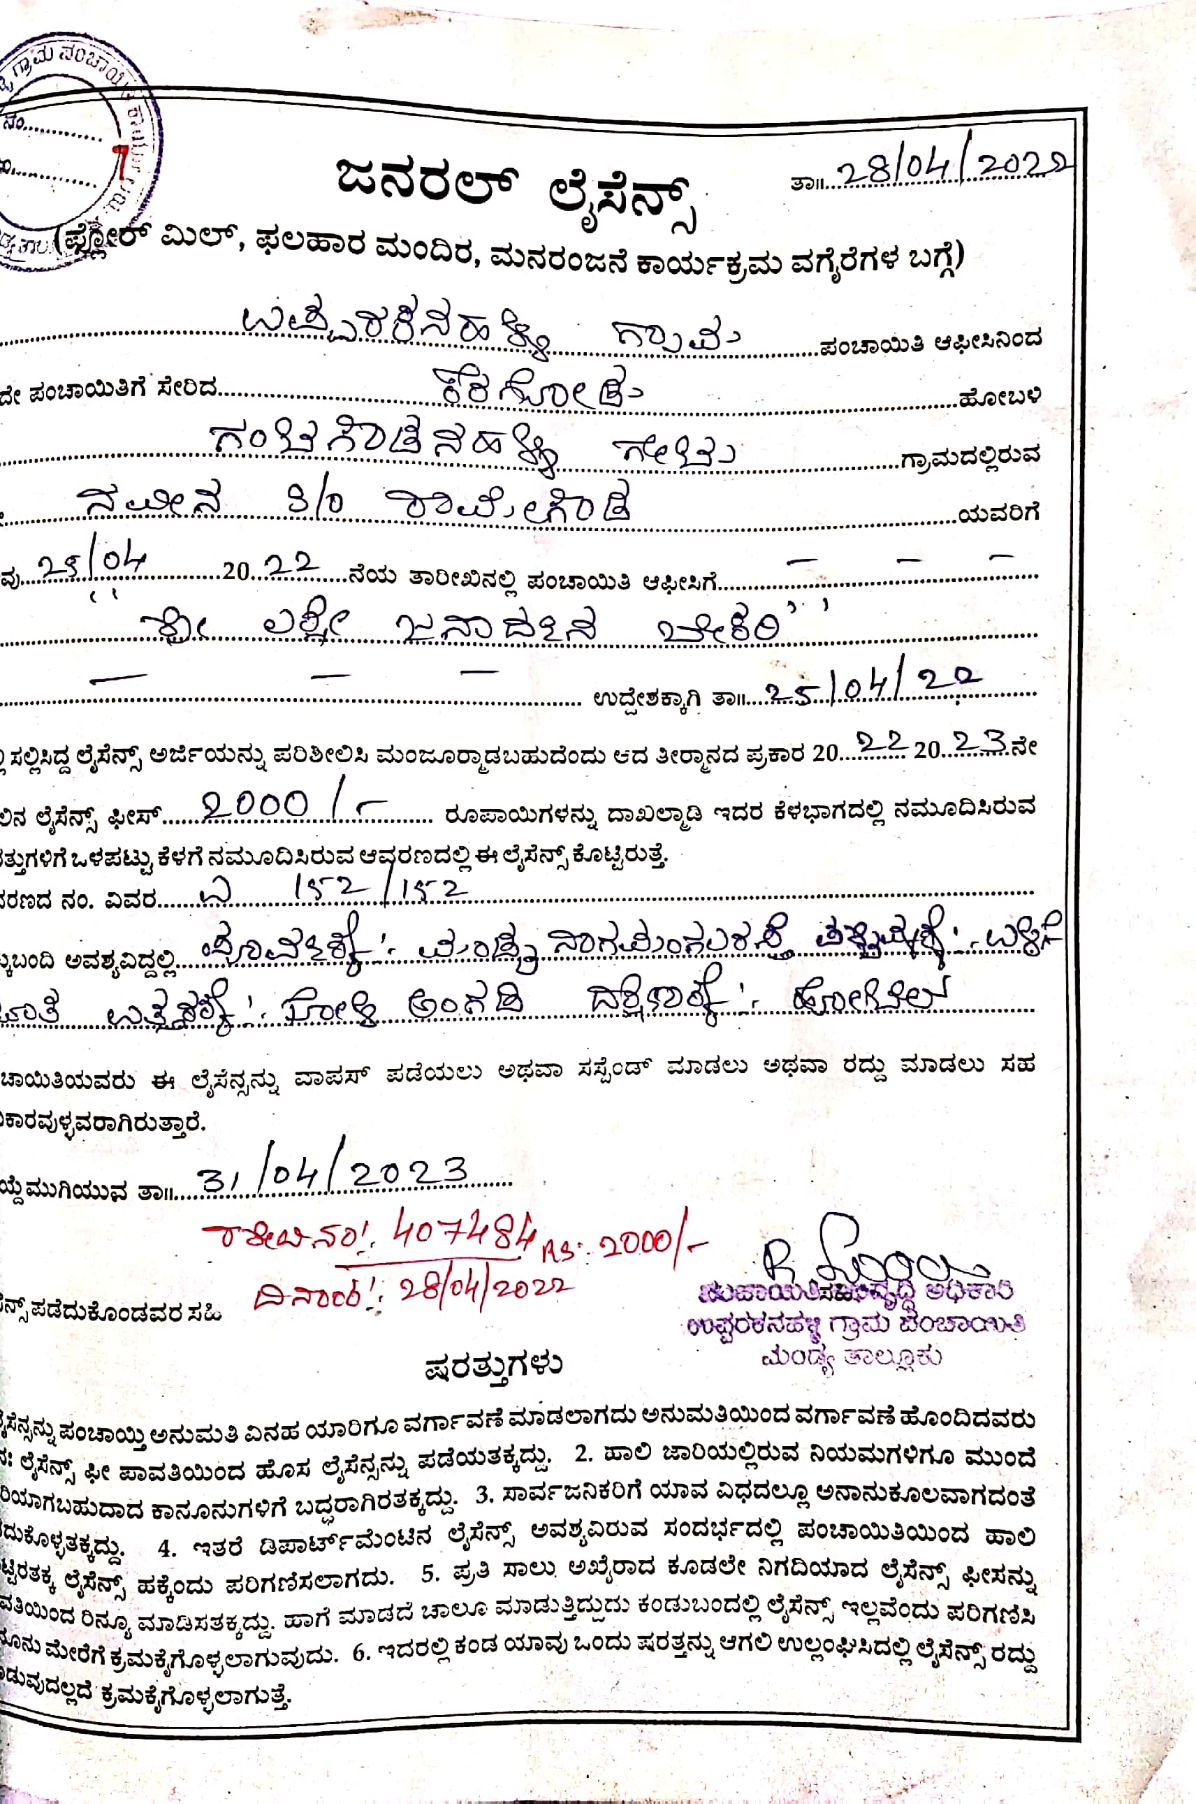 ಗ್ರಾಮ ಪಂಚಾಯಿತಿ ಕಾರ್ಯಾಲಯ
ನಂ............
7
ಜನರಲ್ ಲೈಸೆನ್ಸ್
ತಾ॥..28/04/2022
(ಫ್ಲೋರ್ ಮಿಲ್, ಫಲಹಾರ ಮಂದಿರ, ಮನರಂಜನೆ ಕಾರ್ಯಕ್ರಮ ವಗೈರೆಗಳ ಬಗ್ಗೆ)
ಉಪ್ಪರಕನಹಳ್ಳಿ ಗ್ರಾಮ ಪಂಚಾಯಿತಿ ಆಫೀಸಿನಿಂದ
ದೇ ಪಂಚಾಯಿತಿಗೆ ಸೇರಿದ ಕೆರಗೋಡು ಹೋಬಳಿ
ಗಂಟಗೌಡನಹಳ್ಳಿ ಗೇಟು ಗ್ರಾಮದಲ್ಲಿರುವ
ನವೀನ S/o ರಾಮೇಗೌಡ ಯವರಿಗೆ
ವು 25/04 20..22..ನೆಯ ತಾರೀಖಿನಲ್ಲಿ ಪಂಚಾಯಿತಿ ಆಫೀಸಿಗೆ — — —
"ಶ್ರೀ ಲಕ್ಷ್ಮೀ ಜನಾರ್ದನ ಬೇಕರಿ"
— — — ಉದ್ದೇಶಕ್ಕಾಗಿ ತಾ॥..25/04/22
ಸಲ್ಲಿಸಿದ್ದ ಲೈಸೆನ್ಸ್ ಅರ್ಜಿಯನ್ನು ಪರಿಶೀಲಿಸಿ ಮಂಜೂರ್‍ಮಾಡಬಹುದೆಂದು ಆದ ತೀರ್‍ಮಾನದ ಪ್ರಕಾರ 20..22.. 20..23..ನೇ
ಲಿನ ಲೈಸೆನ್ಸ್ ಫೀಸ್ 2000/- ರೂಪಾಯಿಗಳನ್ನು ದಾಖಲ್ಮಾಡಿ ಇದರ ಕೆಳಭಾಗದಲ್ಲಿ ನಮೂದಿಸಿರುವ
ತ್ತುಗಳಿಗೆ ಒಳಪಟ್ಟು ಕೆಳಗೆ ನಮೂದಿಸಿರುವ ಆವರಣದಲ್ಲಿ ಈ ಲೈಸೆನ್ಸ್ ಕೊಟ್ಟಿರುತ್ತೆ.
ವರಣದ ನಂ. ವಿವರ 152/152
ಬಂದಿ ಅವಶ್ಯವಿದ್ದಲ್ಲಿ ಪೂರ್ವಕ್ಕೆ:. ಮಂಡ್ಯ ನಾಗಮಂಗಲ ರಸ್ತೆ ಪಶ್ಚಿಮಕ್ಕೆ:.
ಉತ್ತರಕ್ಕೆ:. ಕೋಳಿ ಅಂಗಡಿ ದಕ್ಷಿಣಕ್ಕೆ:. ಹೋಟೆಲ್
ಚಾಯಿತಿಯವರು ಈ ಲೈಸೆನ್ಸನ್ನು ವಾಪಸ್ ಪಡೆಯಲು ಅಥವಾ ಸಸ್ಪೆಂಡ್ ಮಾಡಲು ಅಥವಾ ರದ್ದು ಮಾಡಲು ಸಹ
ಕಾರವುಳ್ಳವರಾಗಿರುತ್ತಾರೆ.
ಯ್ದೆಮುಗಿಯುವ ತಾ॥ 31/04/2023
ರಶೀದಿ ನಂ:. 407484 RS:. 2000/-
ದಿನಾಂಕ:. 28/04/2022
ಸೆನ್ಸ್ ಪಡೆದುಕೊಂಡವರ ಸಹಿ
ಸಹಿ
ಪಂಚಾಯಿತಿ ಅಭಿವೃದ್ಧಿ ಅಧಿಕಾರಿ
ಉಪ್ಪರಕನಹಳ್ಳಿ ಗ್ರಾಮ ಪಂಚಾಯಿತಿ
ಮಂಡ್ಯ ತಾಲ್ಲೂಕು
ಷರತ್ತುಗಳು
ಲೈಸೆನ್ಸನ್ನು ಪಂಚಾಯ್ತಿ ಅನುಮತಿ ವಿನಹ ಯಾರಿಗೂ ವರ್ಗಾವಣೆ ಮಾಡಲಾಗದು ಅನುಮತಿಯಿಂದ ವರ್ಗಾವಣೆ ಹೊಂದಿದವರು
ನಃ ಲೈಸೆನ್ಸ್ ಫೀ ಪಾವತಿಯಿಂದ ಹೊಸ ಲೈಸೆನ್ಸನ್ನು ಪಡೆಯತಕ್ಕದ್ದು. 2. ಹಾಲಿ ಜಾರಿಯಲ್ಲಿರುವ ನಿಯಮಗಳಿಗೂ ಮುಂದೆ
ರಿಯಾಗಬಹುದಾದ ಕಾನೂನುಗಳಿಗೆ ಬದ್ಧರಾಗಿರತಕ್ಕದ್ದು. 3. ಸಾರ್ವಜನಿಕರಿಗೆ ಯಾವ ವಿಧದಲ್ಲೂ ಅನಾನುಕೂಲವಾಗದಂತೆ
ದುಕೊಳ್ಳತಕ್ಕದ್ದು. 4. ಇತರೆ ಡಿಪಾರ್ಟ್‌ಮೆಂಟಿನ ಲೈಸೆನ್ಸ್ ಅವಶ್ಯವಿರುವ ಸಂದರ್ಭದಲ್ಲಿ ಪಂಚಾಯಿತಿಯಿಂದ ಹಾಲಿ
ಟ್ಟಿರತಕ್ಕ ಲೈಸೆನ್ಸ್ ಹಕ್ಕೆಂದು ಪರಿಗಣಿಸಲಾಗದು. 5. ಪ್ರತಿ ಸಾಲು ಅಖೈರಾದ ಕೂಡಲೇ ನಿಗದಿಯಾದ ಲೈಸೆನ್ಸ್ ಫೀಸನ್ನು
ವತಿಯಿಂದ ರಿನ್ಯೂ ಮಾಡಿಸತಕ್ಕದ್ದು. ಹಾಗೆ ಮಾಡದೆ ಚಾಲೂ ಮಾಡುತ್ತಿದ್ದುದು ಕಂಡುಬಂದಲ್ಲಿ ಲೈಸೆನ್ಸ್ ಇಲ್ಲವೆಂದು ಪರಿಗಣಿಸಿ
ನೂನು ಮೇರೆಗೆ ಕ್ರಮಕೈಗೊಳ್ಳಲಾಗುವುದು. 6. ಇದರಲ್ಲಿ ಕಂಡ ಯಾವು ಒಂದು ಷರತ್ತನ್ನು ಆಗಲಿ ಉಲ್ಲಂಘಿಸಿದಲ್ಲಿ ಲೈಸೆನ್ಸ್ ರದ್ದು
ಡುವುದಲ್ಲದೆ ಕ್ರಮಕೈಗೊಳ್ಳಲಾಗುತ್ತೆ.